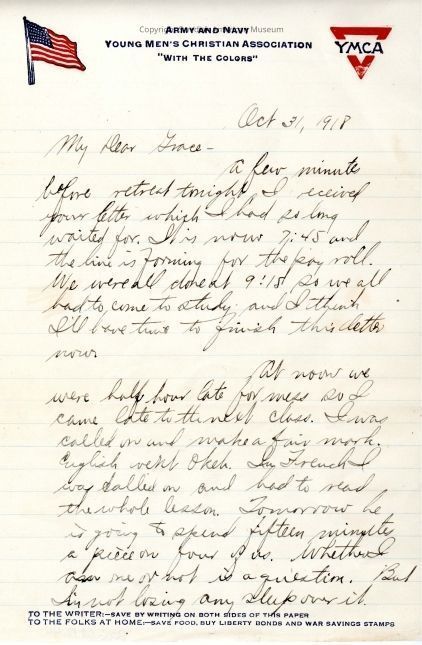 ARMY AND NAVY
YOUNG MEN'S CHRISTIAN ASSOCIATION
"WITH THE COLORS"
YMCA
Oct 31, 1918
My Dear Grace-
A few minutes
before retreat tonight I received
your letter which I had so long
waited for. It is now 7:45 and
the line is forming for the pay roll.
We were all done at 9:15 so we all
had to come to study and I think
I'll have time to finish this letter
now.
At noon we
were half hour late for mess so I
came late to the next class. I was
called on and make a fair mark.
English went Okeh. In French I
was called on and had to read
the whole lesson. Tomorrow he
is going to spend fifteen minutes
a piece on four of us. Whether I
am one or not is a question. But
I'm not losing any sleep over it.
TO THE WRITER:—SAVE BY WRITING ON BOTH SIDES OF THIS PAPER
TO THE FOLKS AT HOME:—SAVE FOOD, BUY LIBERTY BONDS AND WAR SAVINGS STAMPS